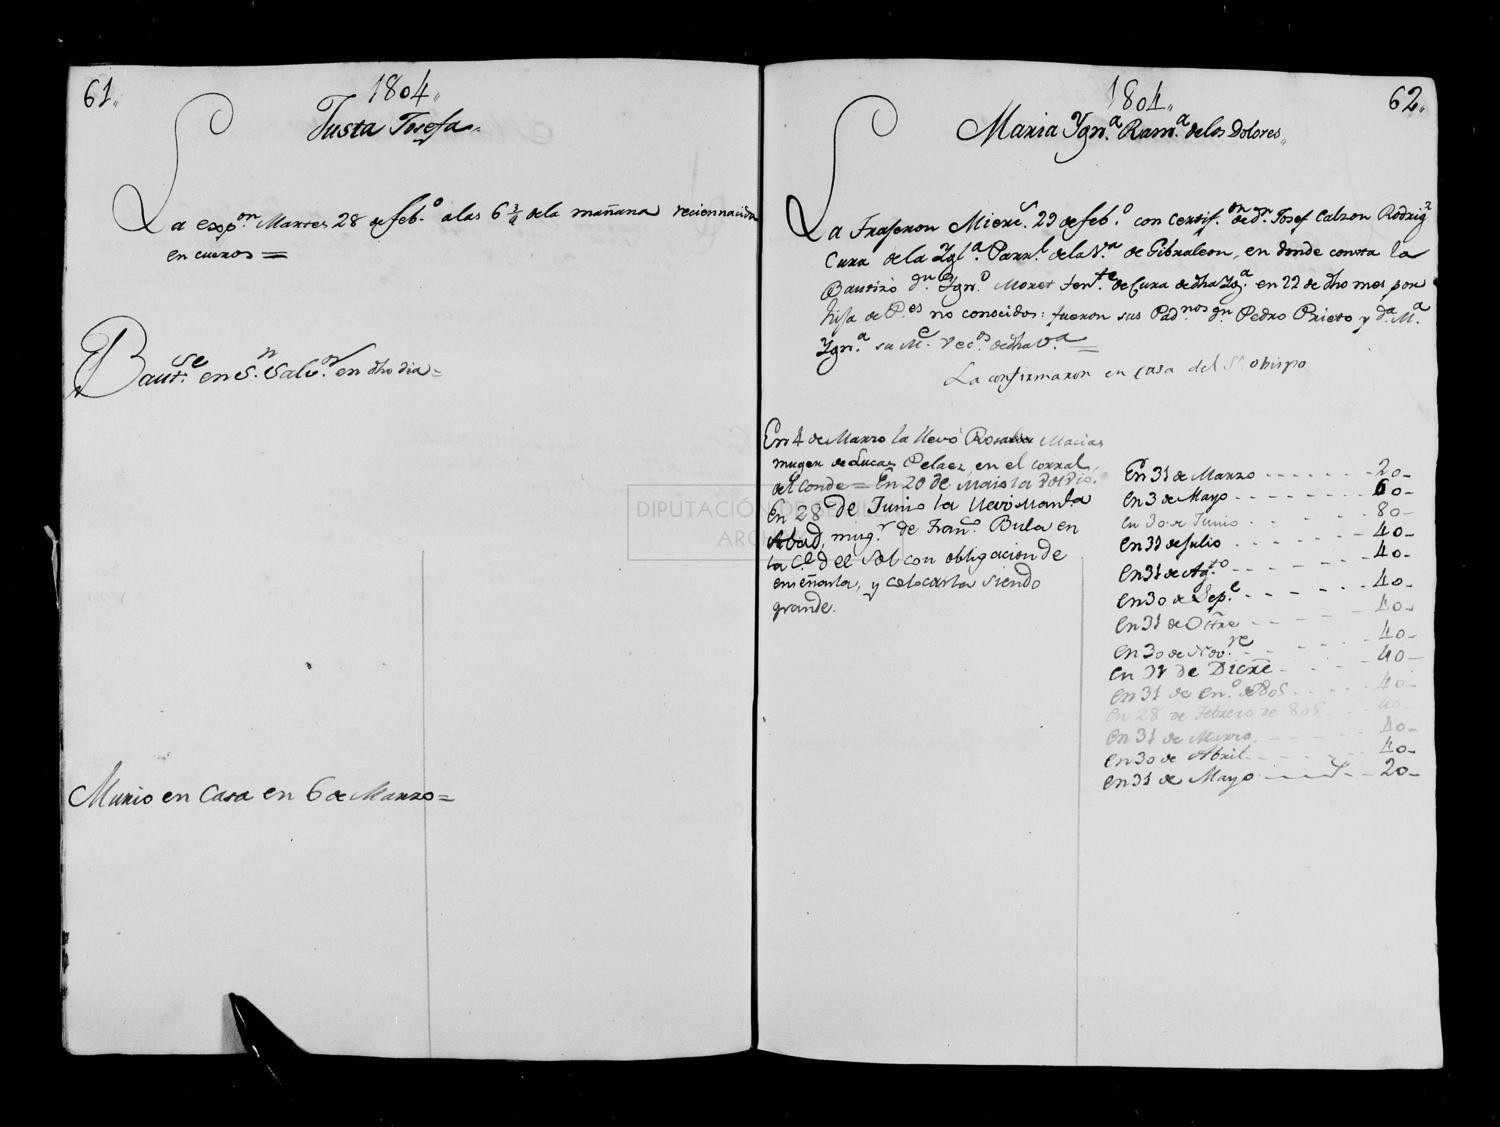 61,,
1804,,
Justa Josefa,,
La exp.on Martes 28 de feb.o a las 6 3/4 de la mañana reciennacida
en cueros =
Baut.se en S.n Salv.or en dho dia =
Murio en Casa en 6 de Marzo =
1804,,
62,,
Maria Ygn.a Ram.a de los Dolores,,
La Trageron Mierc.s 29 de feb.o con certif.on de d.n Josef Calzon Rodrig.z
Cura de la Ygl.a Parr.l de la V.a de Gibraleon, en donde consta la
Bautizó d.n Ygn.o Moret ten.te de Cura de dha Yg.a en 22 de dho mes por
hija de P.es no conocidos: fueron sus Pad.nos d.n Pedro Prieto y d.a M.a
Ygn.a su M.e vec.os de dha V.a =
La confirmaron en casa del S.r obispo
En 4 de Marzo la llevó Rosalia Macias
muger de Lucas Pelaez, en el corral
del Conde = En 20 de Maio la volvio.
En 28 de Junio la llevó Man.la
Abad, mug.r de Fran.co Bula en
la C.e del Sol con obligacion de
enseñarla, y colocarla siendo
grande.
En 31 de Marzo - - - - - - 20 -
En 3 de Mayo - - - - - - 60 -
En 30 de Junio - - - - - 80 -
En 31 de Julio - - - - - - 40 -
En 31 de Ag.to - - - - - - 40 -
En 30 de Sep.e - - - - - - 40 -
En 31 de Octre - - - - - - 40 -
En 30 de Nov.re - - - - - - 40 -
En 31 de Dicre - - - - - - 40 -
En 31 de En.o de 805 - - - - 40 -
En 28 de Febrero de 805 - - - 40 -
En 31 de Marzo - - - - - - 40 -
En 30 de Abril - - - - - - 40 -
En 31 de Mayo - - - - - - 20 -
DIPUTACIÓN DE SEVILLA